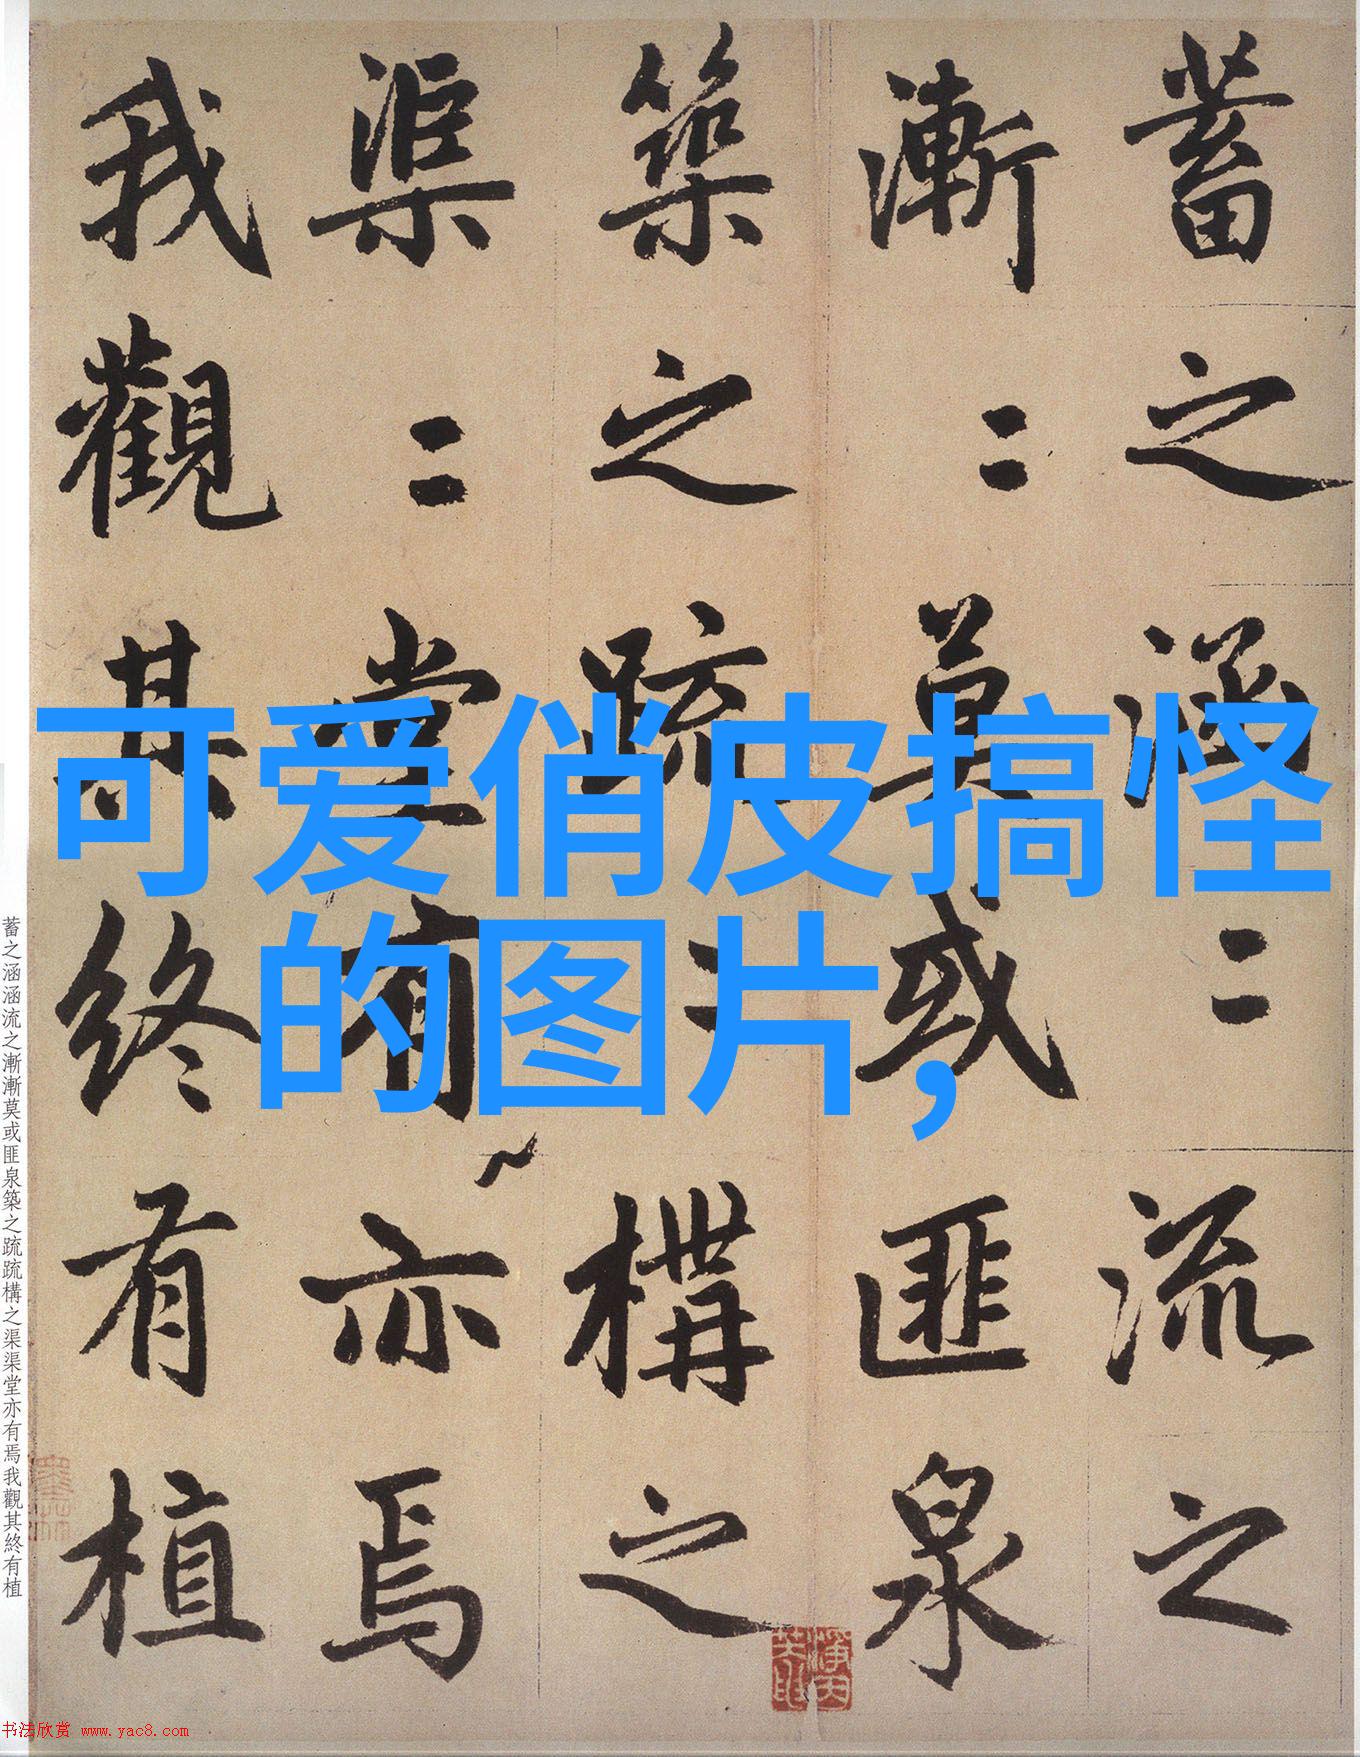 蓄之涵〻流之
漸〻莫或匪泉
築之疏〻構之
渠〻堂有亦焉
我觀其終有植
可爱俏皮搞怪
的图片,
蓄之涵涵流之漸漸莫或匪泉築之疏疏構之渠渠堂亦有焉我觀其終有植
书法欣赏 www.yac8.com